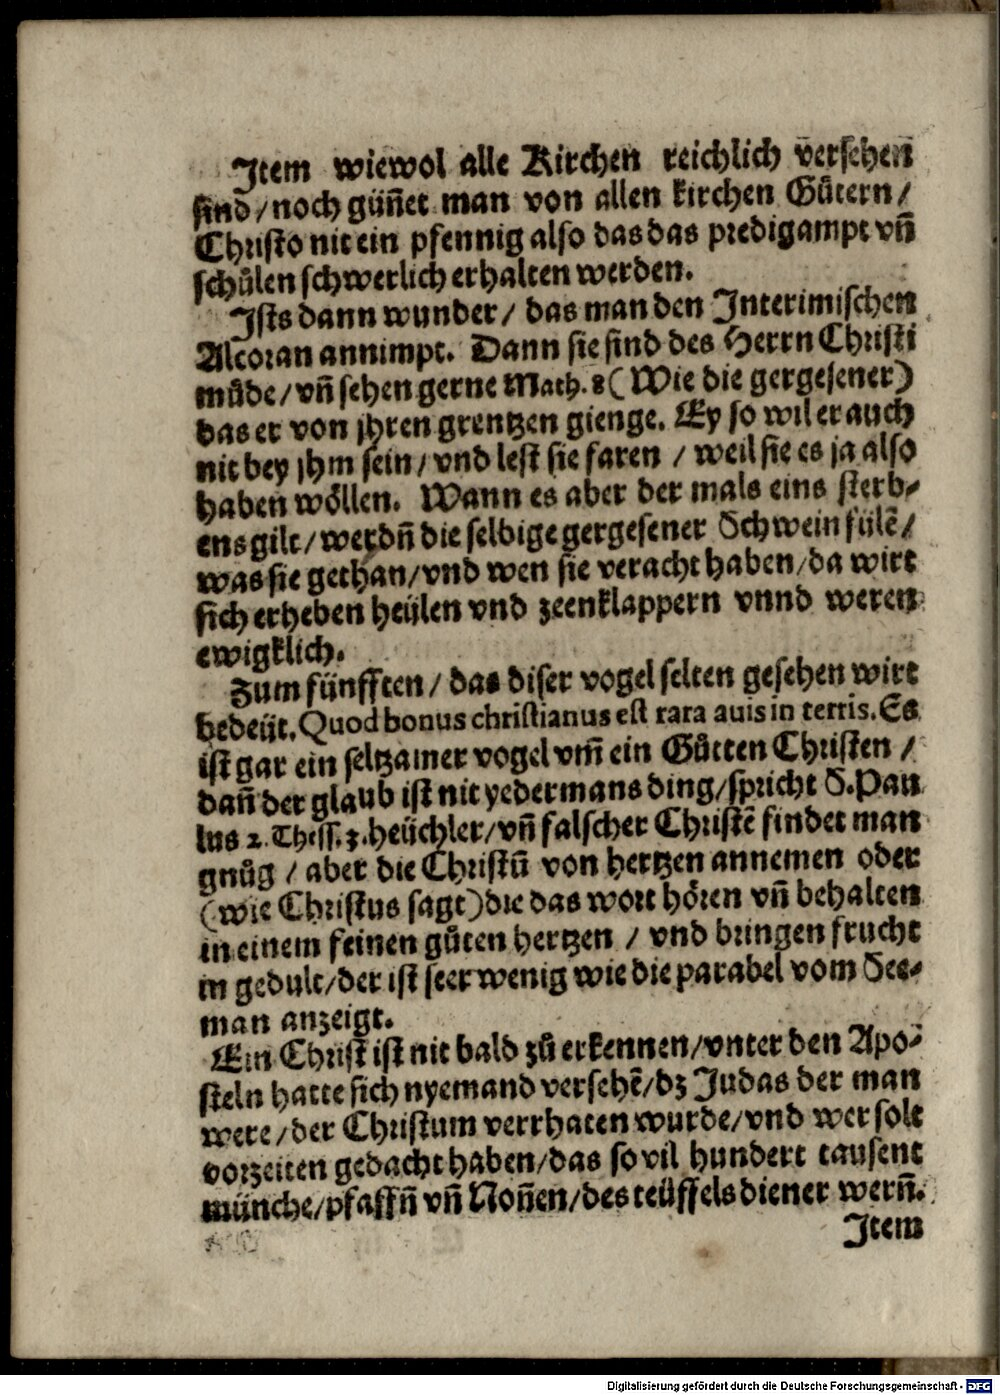 Item wiewol alle Kirchen reichlich versehen
sind / noch gün̄et man von allen kirchen Gůtern /
Christo nit ein pfennig also das das predigampt vn̄
schůlen schwerlich erhalten werden.
Ists dann wunder / das man den Interimischen
Alcoran annimpt. Dann sie sind des Herrn Christi
můde / vn̄ sehen gerne Math. 8 (Wie die gergesener)
das er von jhren grentzen gienge. Ey so wil er auch
nit bey jhm sein / vnd lest sie faren / weil sie es ja also
haben wöllen. Wann es aber der mals eins sterb⸗
ens gilt / werdn̄ die selbige gergesener Schwein fülē /
was sie gethan / vnd wen sie veracht haben / da wirt
sich erheben heülen vnd zeenklappern vnnd weren
ewigklich.
Zum fünfften / das diser vogel selten gesehen wirt
bedeüt. Quod bonus christianus est rara auis in terris. Es
ist gar ein seltzamer vogel vm̄ ein Gůtten Christen /
dan̄ der glaub ist nit yedermans ding / spricht S. Pau
lus 2. Thess. 3. heüchler / vn̄ falscher Christē findet man
gnůg / aber die Christū von hertzen annemen oder
(wie Christus sagt) die das wort hören vn̄ behalten
in einem feinen gůten hertzen / vnd bringen frucht
in gedult / der ist seer wenig wie die parabel vom See⸗
man anzeigt.
Ein Christ ist nit bald zů erkennen / vnter den Apo⸗
steln hatte sich nyemand versehē / dz Judas der man
were / der Christum verrhaten wurde / vnd wer solt
vorzeiten gedacht haben / das so vil hundert tausent
münche / pfaffn̄ vn̄ Non̄en / des teüffels diener wern̄.
Item
Digitalisierung gefördert durch die Deutsche Forschungsgemeinschaft - DFG